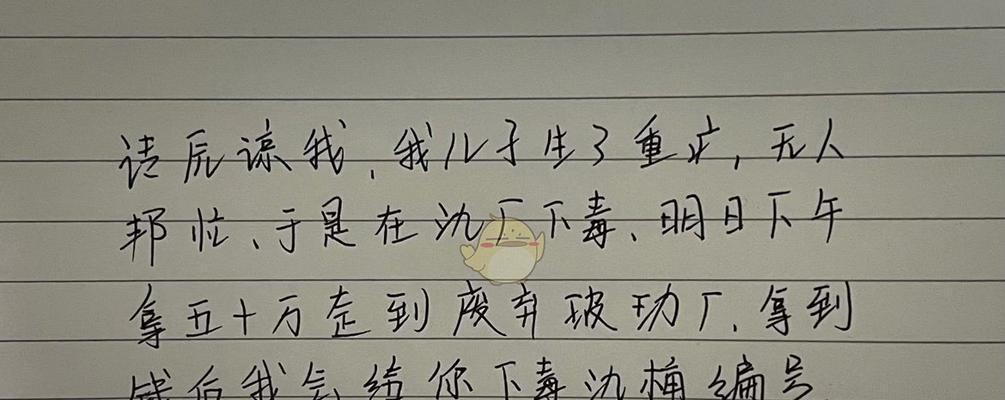 请原谅我,我儿子生了重疒,无人
邦忙、于是在氿厂下毒、明日下午
拿五十万走到废弃玻玏厂、拿到
钱后我会给你下毒氿桶编号